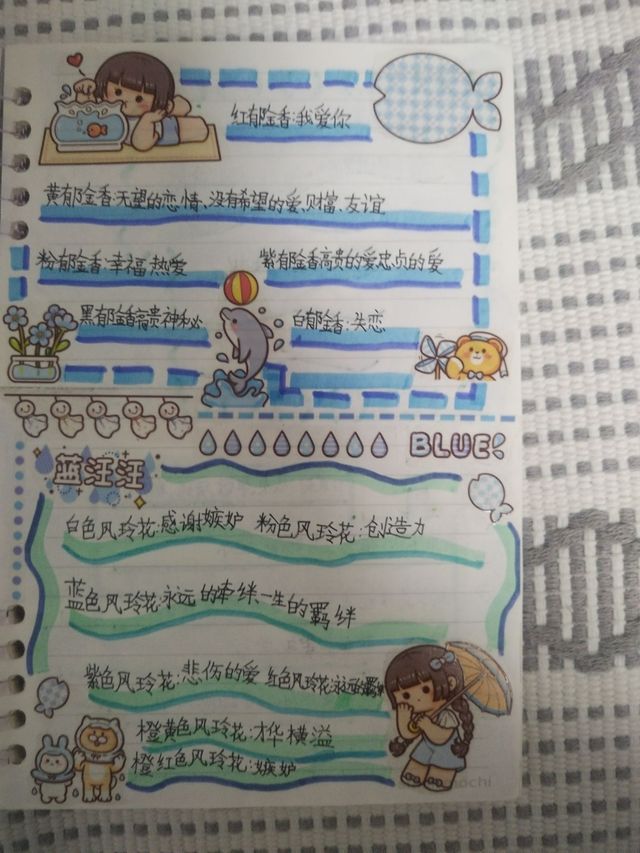 红郁金香:我爱你
黄郁金香:无望的恋情、没有希望的爱、财富、友谊
粉郁金香:幸福、热爱 紫郁金香高贵的爱忠贞的爱
黑郁金香高贵神秘 白郁金香:失恋
BLUE!
蓝汪汪
白色风玲花:感谢嫉妒 粉色风玲花:创造力
蓝色风玲花:永远的牵绊、一生的羁绊
紫色风玲花:悲伤的爱 红色风玲花:永远的
橙黄色风玲花:才华横溢
橙红色风玲花:嫉妒